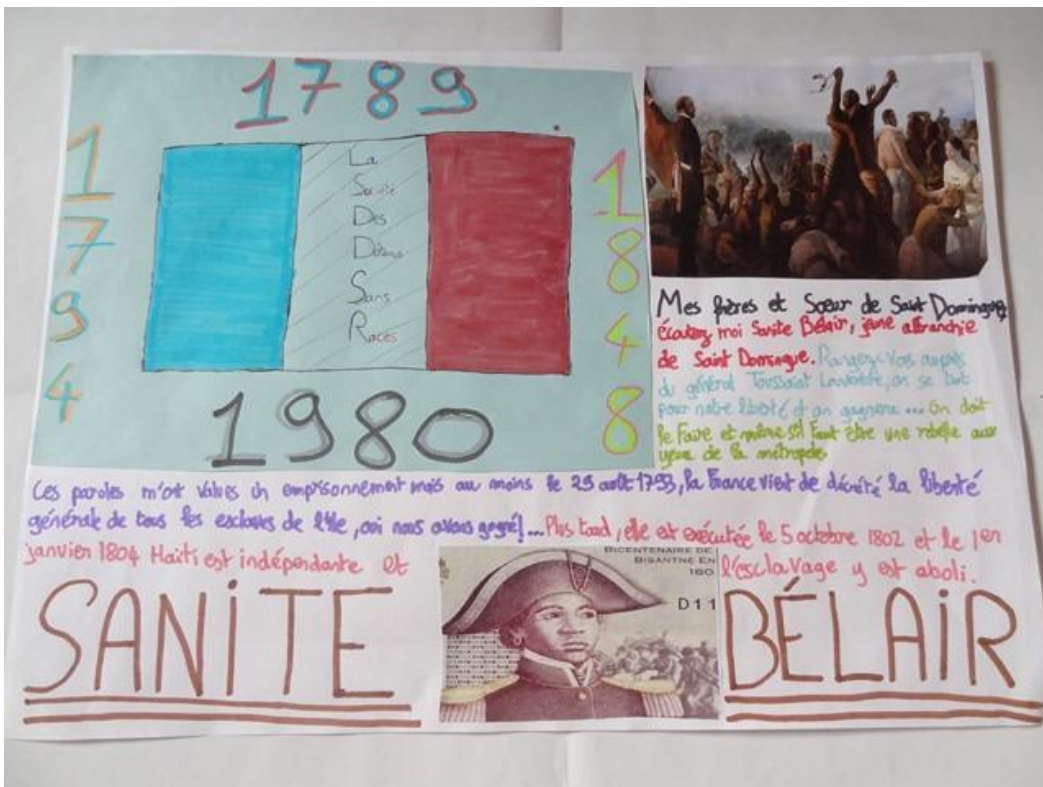 1789
1794
La
Société
Des
Détenus
Sans
Races
1848
1980
Mes frères et Sœur de Saint Domingue,
écoutez moi Sanite Bélair, jeune affranchie
de Saint Domingue. Rangez-vos auprès
du général Toussaint Louverture, on se bat
pour notre liberté et on gagnera ... On doit
le faire et même s'il faut être une rebelle aux
yeux de la métropole
Ces paroles m'ont values un emprisonnement mais au moins le 29 août 1793, la France vient de décrété la liberté
générale de tous les esclaves de l'île, oui nous avons gagné! ... Plus tard, elle est exécutée le 5 octobre 1802 et le 1er
janvier 1804 Haïti est indépendante et l'esclavage y est aboli.
BICENTENAIRE DE
BIGANTNE EN
180
D11
SANiTE BÉLAiR